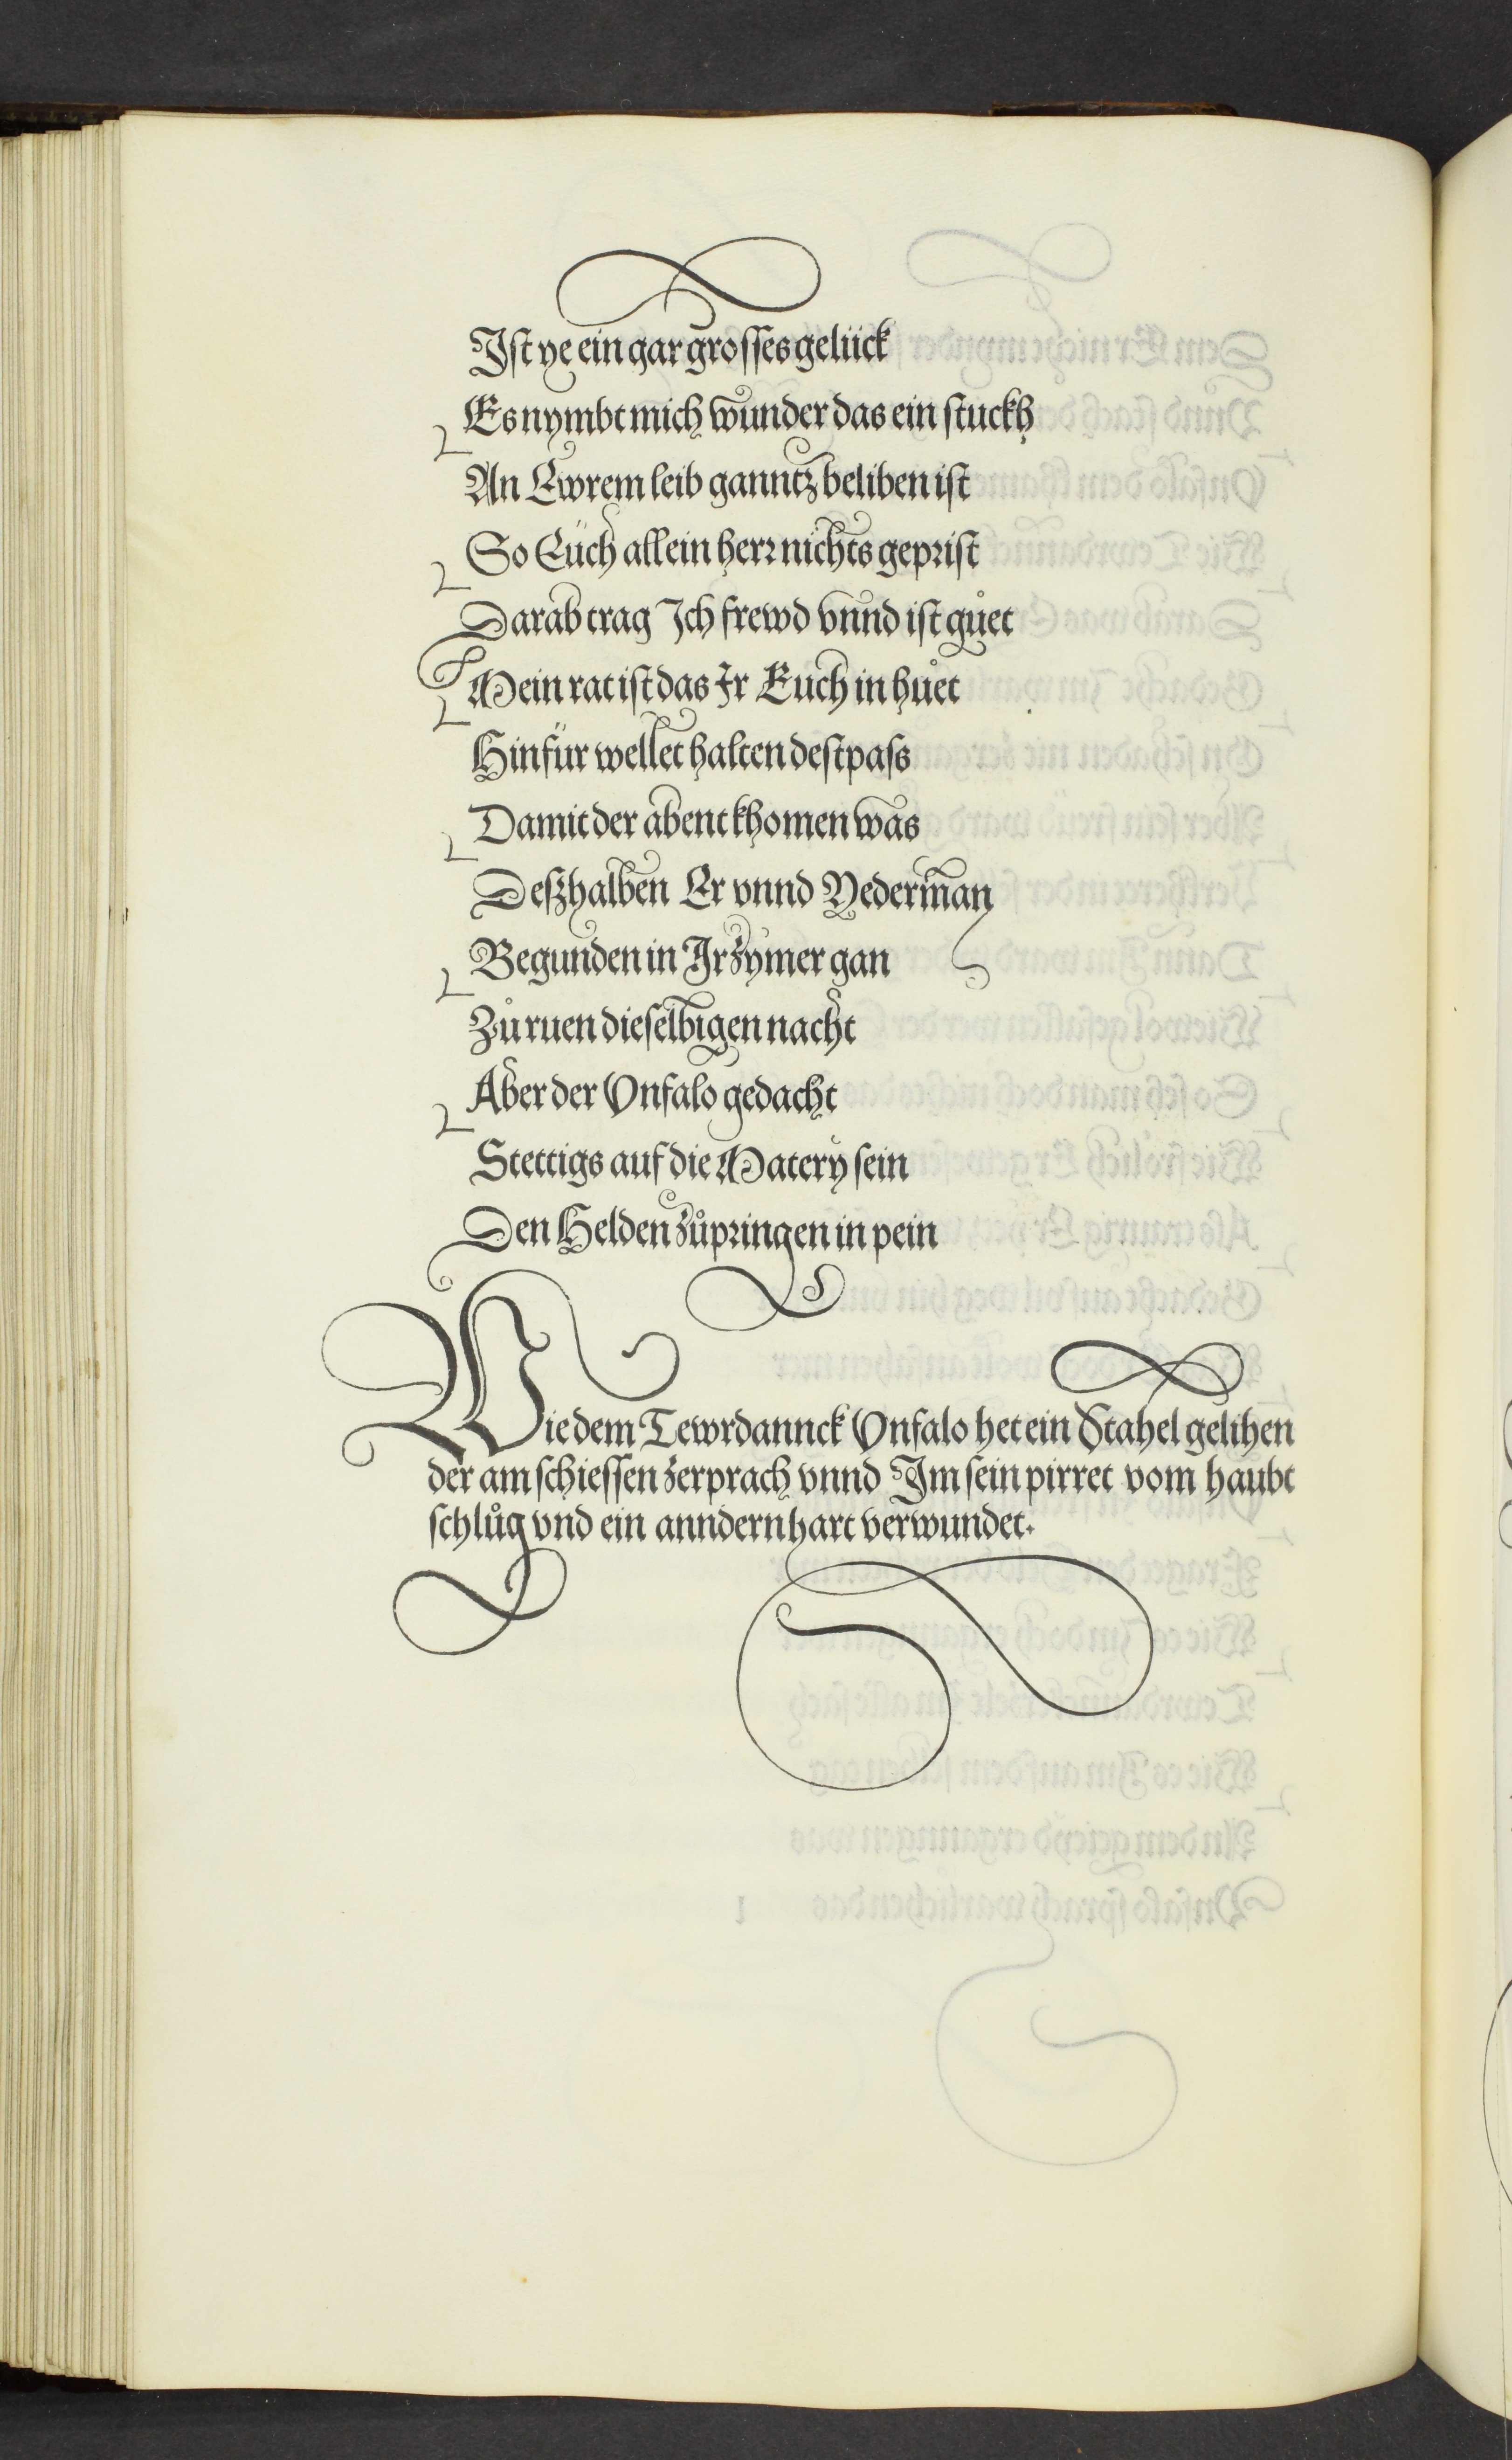 Ist ye ein gar grosses gelück
Es nymbt mich wunder das ein stuckh
An Ewrem leib ganntz beliben ist
So Eüch allein herr nichts geprist
Darab trag Ich frewd vnnd ist gůet
Mein rat ist das Ir Euch in hůet
Hinfür wellet halten destpass
Damit der abent khomen was
Deßhalben Er vnnd Yederman
Begunden in Ir zymer gan
Zů ruen dieselbigen nacht
Aber der Vnfalo gedacht
Stettigs auf die Matery sein
Den Helden zůpringen in pein
Wie dem Tewrdannck Vnfalo het ein Stahel gelihen
der am schiessen zerprach vnnd Im sein pirret vom haubt
schlůg vnd ein anndern hart verwundet.